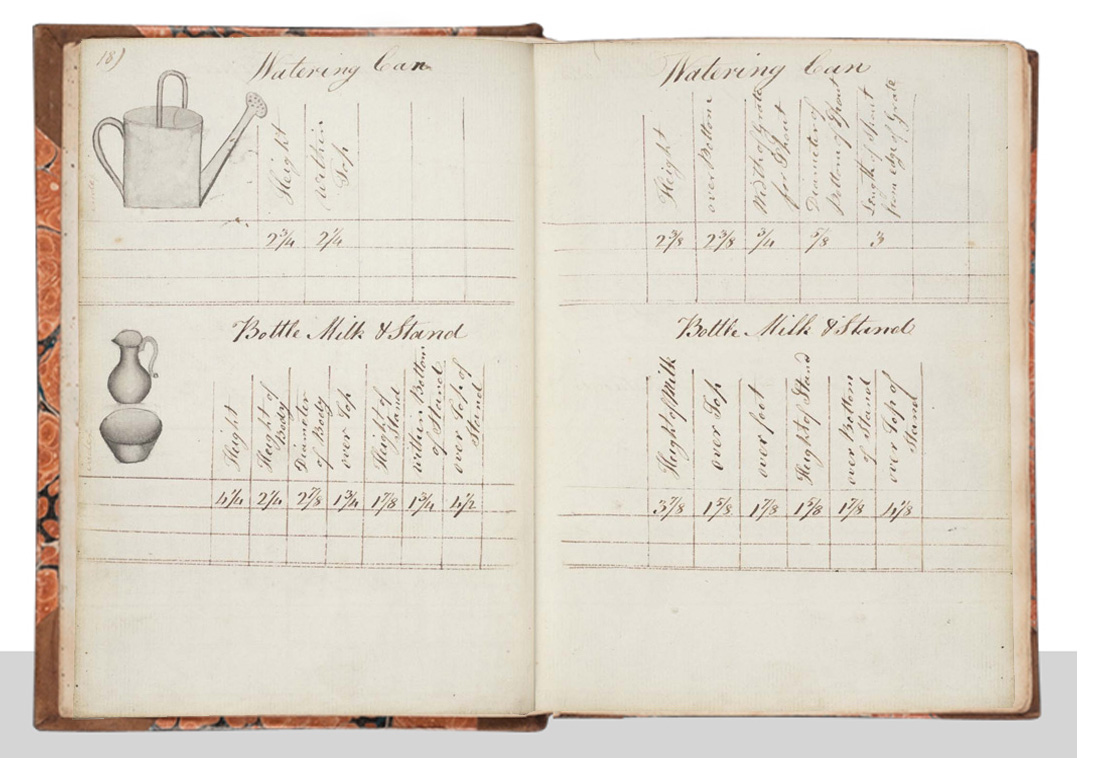 18)
Watering Can
Height
within
Top
2 3/4
2 1/4
Bottle Milk & Stand
Height
Height of
Body
Diameter
of Body
over Top
Height of
Stand
within Bottom
of Stand
over Top of
Stand
4 1/4
2 1/4
2 7/8
1 3/4
1 7/8
1 3/4
4 1/2
Watering Can
Height
over Bottom
Width of Grate
for Spout
Diameter of
Bottom of Spout
Length of Spout
from edge of Grate
2 3/8
2 3/8
3/4
5/8
3
Bottle Milk & Stand
Height of Milk
over Top
over foot
Height of Stand
over Bottom
of Stand
over Top of
Stand
3 7/8
1 5/8
1 7/8
1 5/8
1 7/8
4 1/8